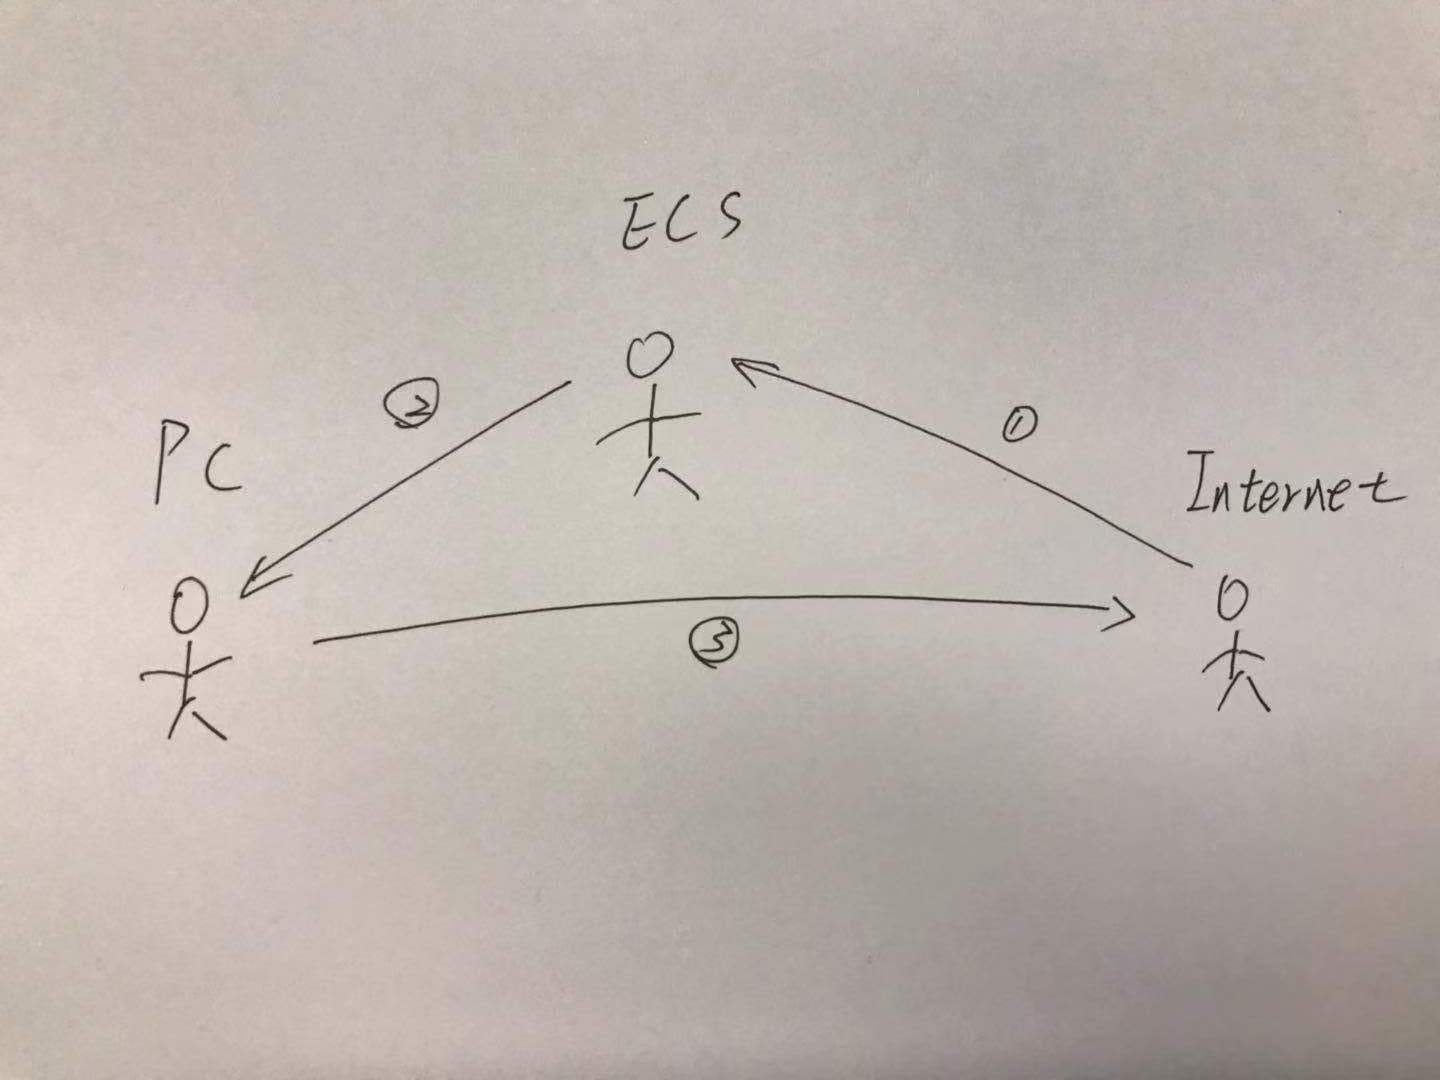 ECS
②
①
PC
Internet
③